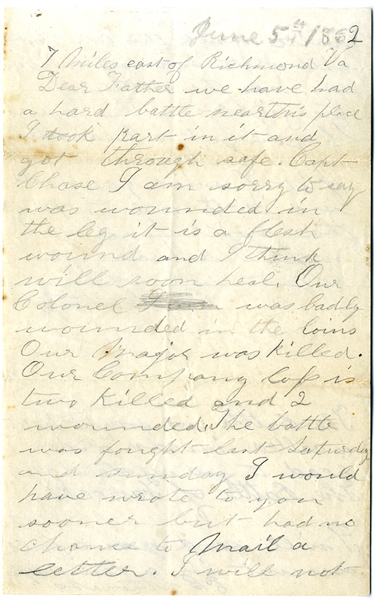 June 5th/1862
7 Miles east of Richmond Va
Dear Father we have had
a hard battle near this place
I took part in it and
got through safe. Capt
Chase I am sorry to say
was wounded in
the leg it is a flesh
wound and I think
will soon heal. Our
Colonel was badly
wounded in the loins
Our Major was killed.
Our Company loss is
two killed and 2
wounded. The battle
was fought last Saturday
and sunday I would
have wrote to you
sooner but had no
chance to Mail a
letter. I will not